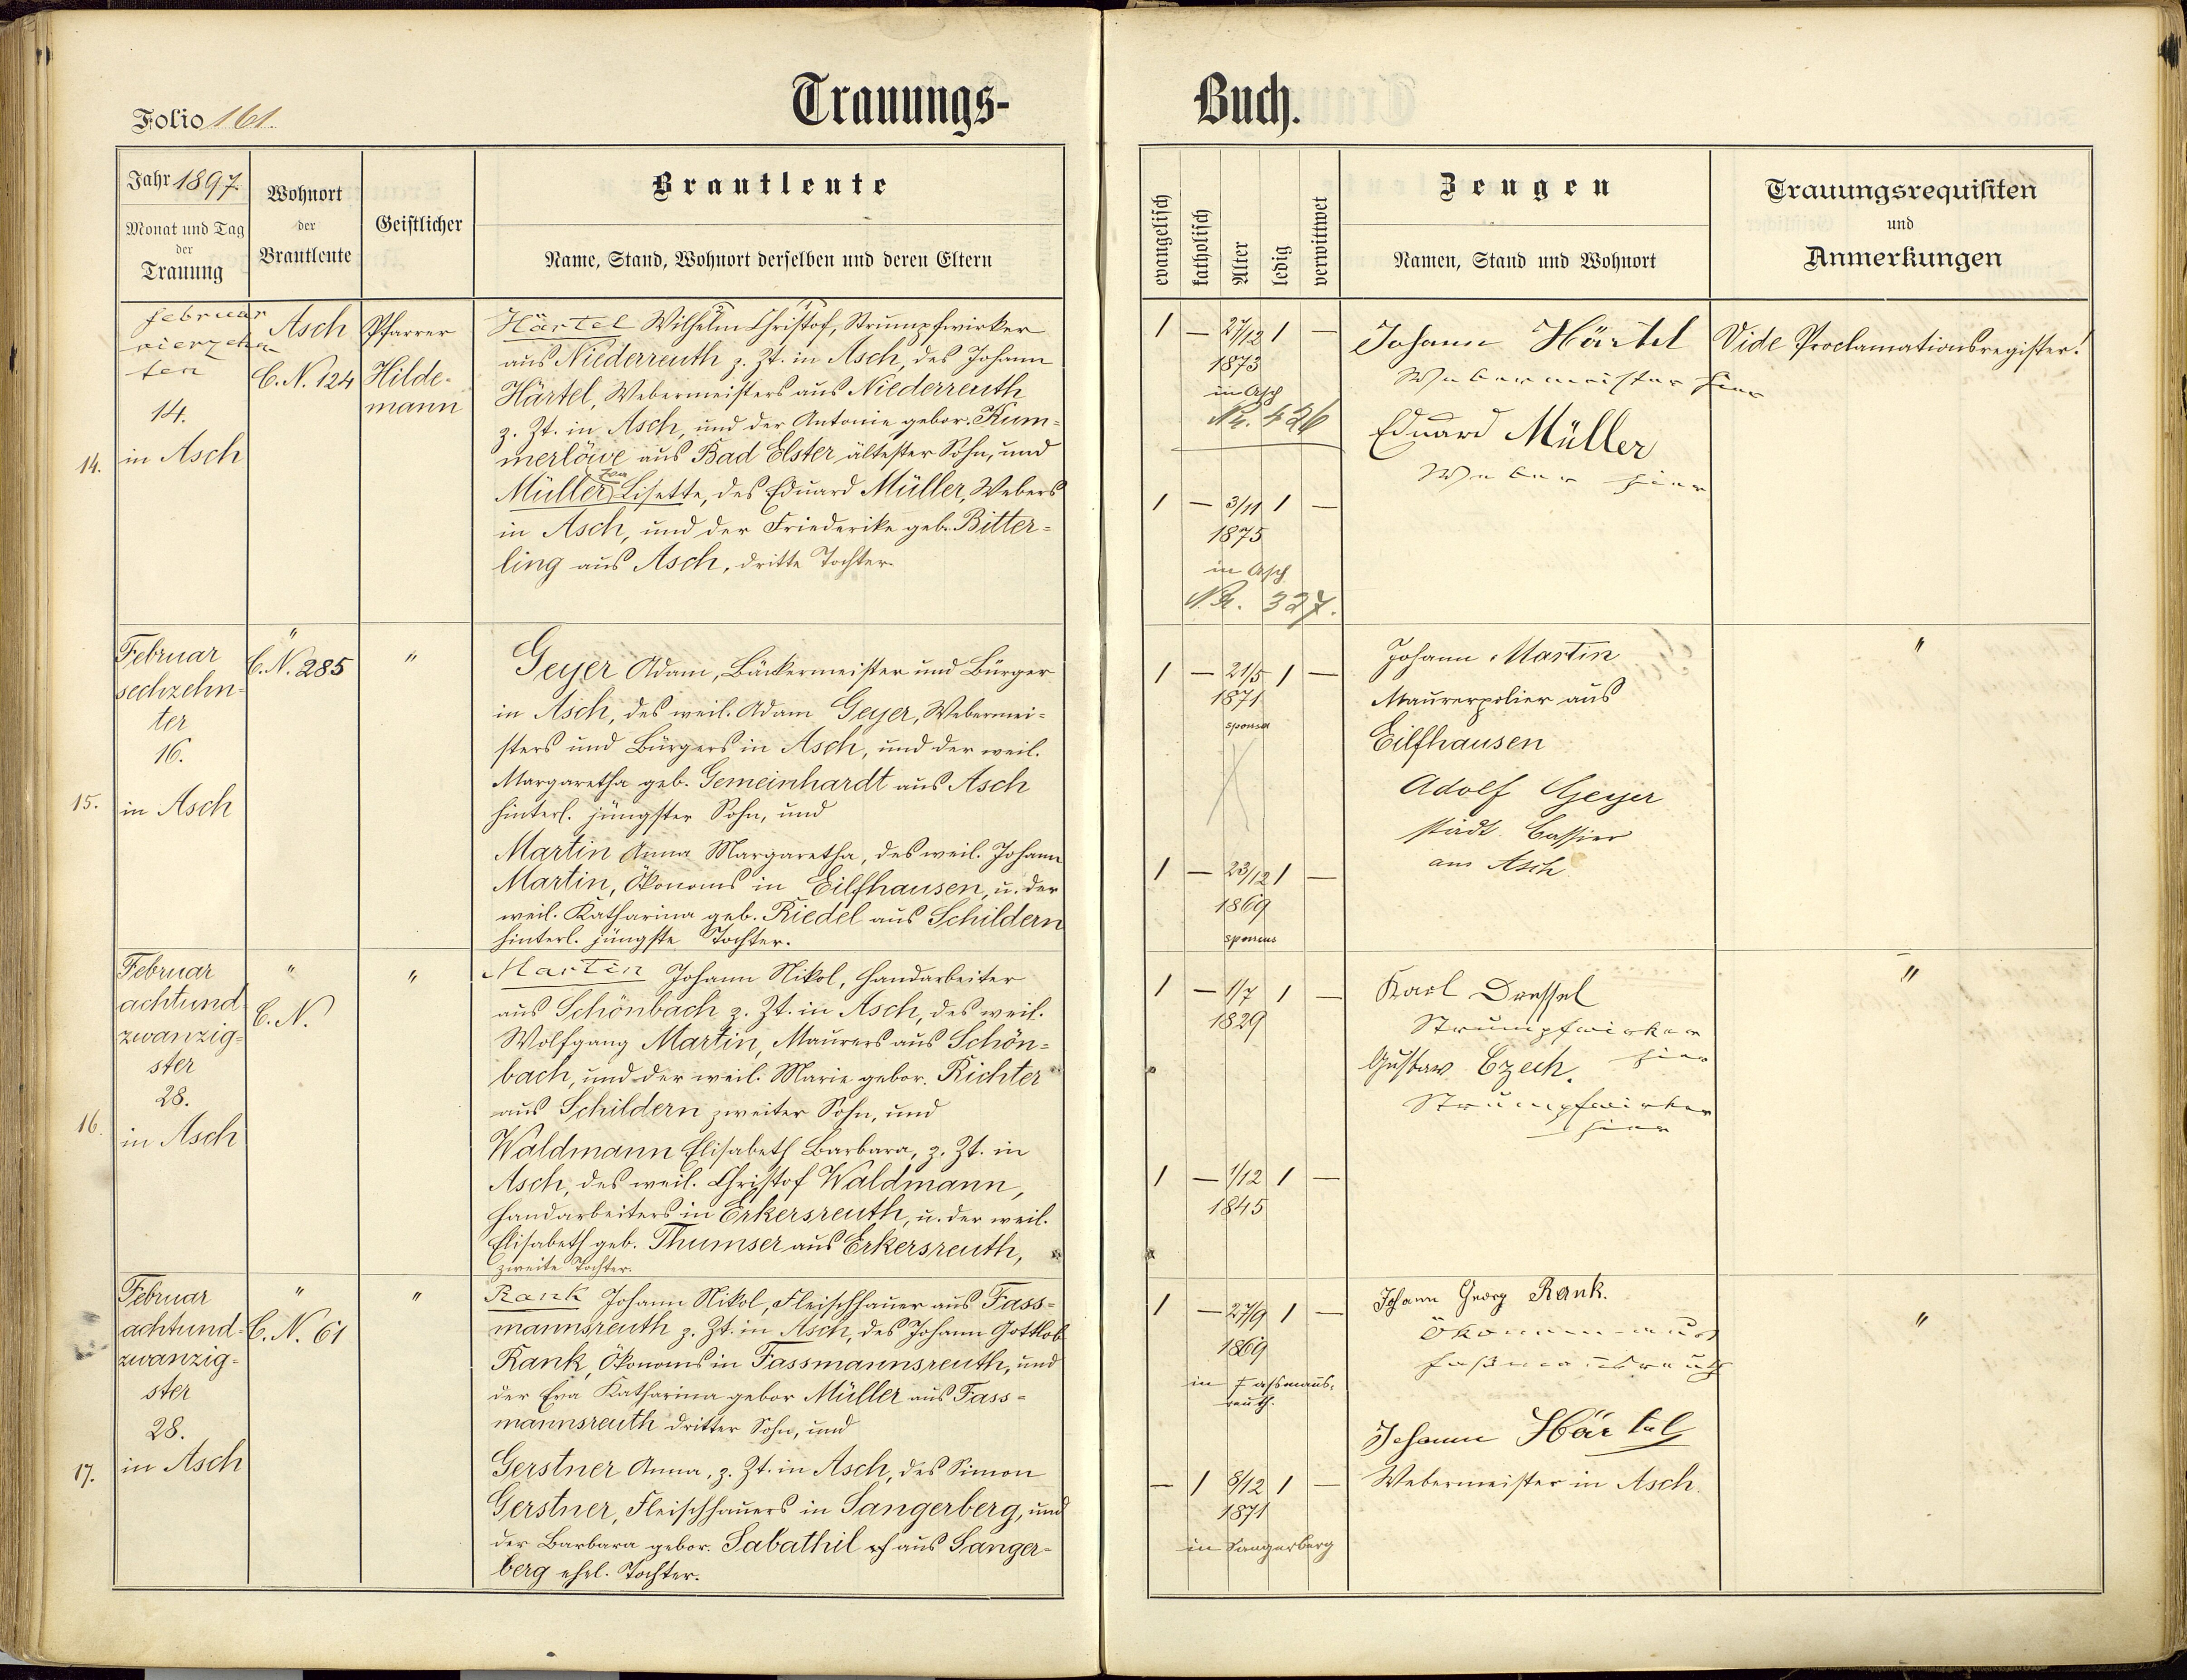 Trauungs-
Buch.
Folio 161.
Jahr 1897.
Monat und Tag
der
Trauung
Wohnort
der
Brautleute
Geistlicher
Brautleute
Name, Stand, Wohnort derselben und deren Eltern
evangelisch
katholisch
Alter
ledig
verwittwet
Zeugen
Namen, Stand und Wohnort
Trauungsrequisiten
und
Anmerkungen
14.
Februar
vierzehn
ten
14.
in Asch
Asch
C. N. 124
Pfarrer
Hilde-
mann
2 1
Härtel Wilhelm Christof, Strumpfwirker
aus Niederreuth z. Zt. in Asch, des Johann
Härtel, Webermeisters aus Niederreuth
z. Zt. in Asch, und der Antonie gebor. Kum=
merlöwe aus Bad Elster ältester Sohn, und
Müller Lisette, des Eduard Müller, Webers
in Asch, und der Friederike geb. Bitter=
ling aus Asch, dritte Tochter.
1 — 27/12 1 —
1873
in Asch
Nr. 426
1 — 3/11 1 —
1875
in Asch
Nr. 327.
Johann Härtel
Webermeister hier
Eduard Müller
Weber hier
Vide Proclamationsregister!
15.
Februar
sechzehn-
ter
16.
in Asch
"
C. N. 285
"
Geyer Adam, Bäckermeister und Bürger
in Asch, des weil. Adam Geyer, Webermei=
sters und Bürgers in Asch, und der weil.
Margaretha geb. Gemeinhardt aus Asch
hinterl. jüngster Sohn, und
Martin Anna Margaretha, des weil. Johann
Martin, Ökonoms in Eilfhausen, u. der
weil. Katharina geb. Riedel aus Schildern
hinterl. jüngste Tochter.
1 — 21/5 1 —
1871
sponsa
1 — 23/12 1 —
1869
sponsus
Johann Martin
Maurerpolier aus
Eilfhausen
Adolf Geyer
städt. Cassier
aus Asch
"
16.
Februar
achtund
zwanzig=
ster
28.
in Asch
"
C. N.
"
Martin Johann Nikol, Handarbeiter
aus Schönbach z. Zt. in Asch, des weil.
Wolfgang Martin, Maurers aus Schön=
bach, und der weil. Marie gebor. Richter
aus Schildern zweiter Sohn, und
Waldmann Elisabeth Barbara, z. Zt. in
Asch, des weil. Christof Waldmann,
Handarbeiters in Erkersreuth, u. der weil.
Elisabeth geb. Thumser aus Erkersreuth,
zweite Tochter.
1 — 1/7 1 —
1829
1 — 1/12 1 —
1845
Karl Dressel
Strumpfwirker
hier
Gustav Czech.
Strumpfwirker
hier
"
17.
Februar
achtund=
zwanzig=
ster
28.
in Asch
"
C. N. 61
"
Rank Johann Nikol, Fleischhauer aus Fass=
mannsreuth z. Zt. in Asch, des Johann Gottlob
Rank, Ökonoms in Fassmannsreuth, und
der Eva Katharina gebor Müller aus Fass=
mannsreuth dritter Sohn, und
Gerstner Anna, z. Zt. in Asch, des Simon
Gerstner, Fleischhauers in Sangerberg, und
der Barbara gebor. Sabathil aus Sanger=
berg ehel. Tochter.
1 — 27/9 1 —
1869
in Fassmanns-
reuth.
— 1 8/12 1 —
1871
in Sangerberg
Johann Georg Rank.
Ökonom aus
Faßmannsreuth
Johann Härtel
Webermeister in Asch.
"